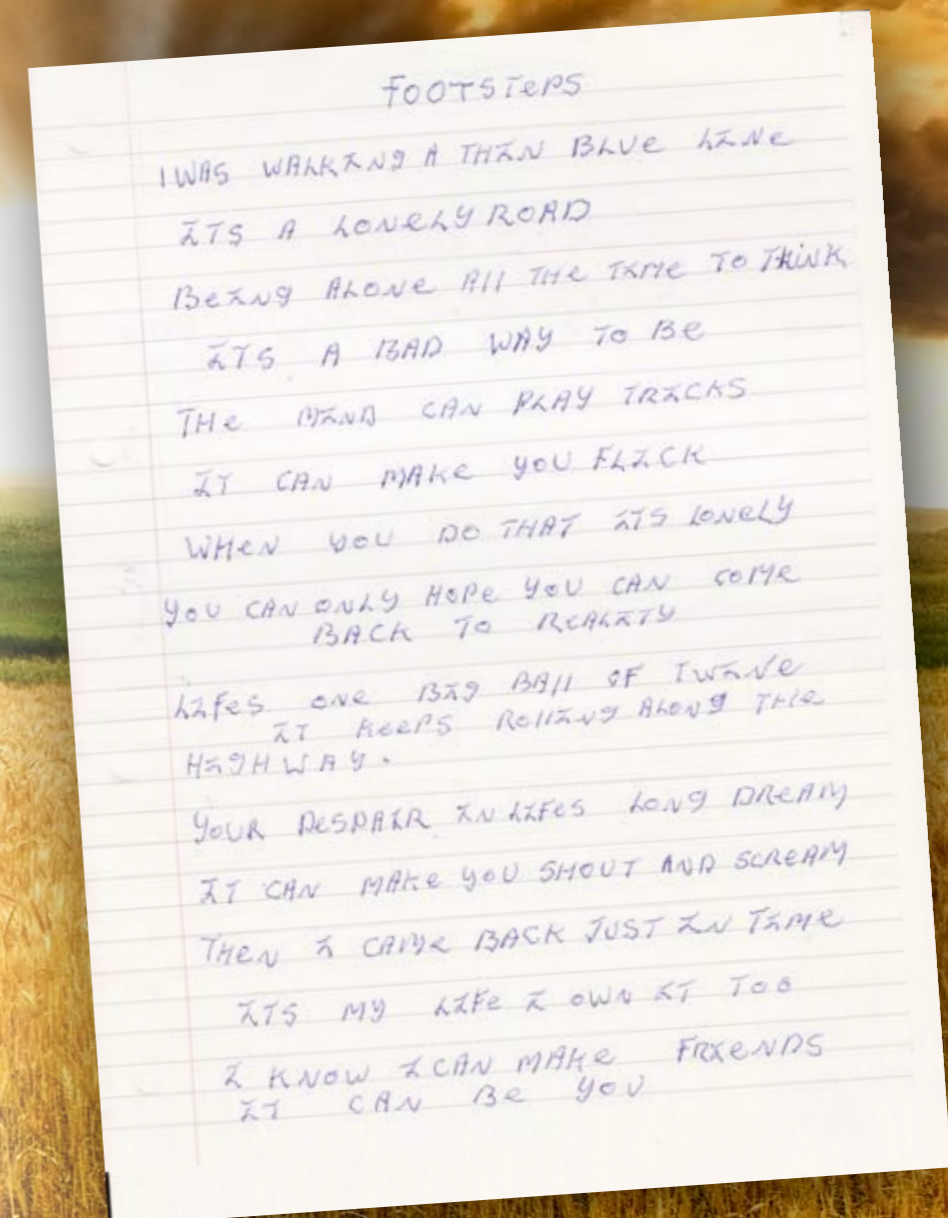 FOOTSTePS
I WAS WALKING A THIN BLUe LINe
ITS A LONeLY ROAD
BeINg ALONe All THe TIMe TO THiNK
ITS A BAD WAY TO Be
THe MIND CAN PLAY TRICKS
IT CAN MAKe YOU FLICK
WHeN YOU DO THAT ITS LONeLY
YOU CAN ONLY HOPe YOU CAN COMe
BACK TO ReALITY
LIFeS ONe BIg BAll OF TWINe
IT KeePS ROllINg ALONg THe
HIgHWAY.
YOUR DeSPAIR IN LIFeS LONg DReAM
IT CAN MAKe YOU SHOUT AND SCReAM
THeN I CAMe BACK JUST IN TIMe
ITS MY LIFe I OWN IT TOO
I KNOW I CAN MAKe FRIeNDS
IT CAN Be YOU